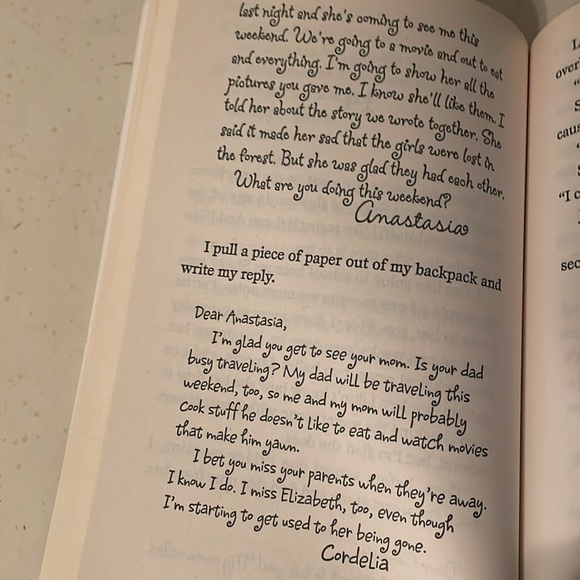 last night and she's coming to see me this
weekend. We're going to a movie and out to eat
and everything. I'm going to show her all the
pictures you gave me. I know she'll like them. I
told her about the story we wrote together. She
said it made her sad that the girls were lost in
the forest. But she was glad they had each other.
What are you doing this weekend?
Anastasia
I pull a piece of paper out of my backpack and
write my reply.
Dear Anastasia,
I'm glad you get to see your mom. Is your dad
busy traveling? My dad will be traveling this
weekend, too, so me and my mom will probably
cook stuff he doesn't like to eat and watch movies
that make him yawn.
I bet you miss your parents when they're away.
I know I do. I miss Elizabeth, too, even though
I'm starting to get used to her being gone.
Cordelia
over
"I c